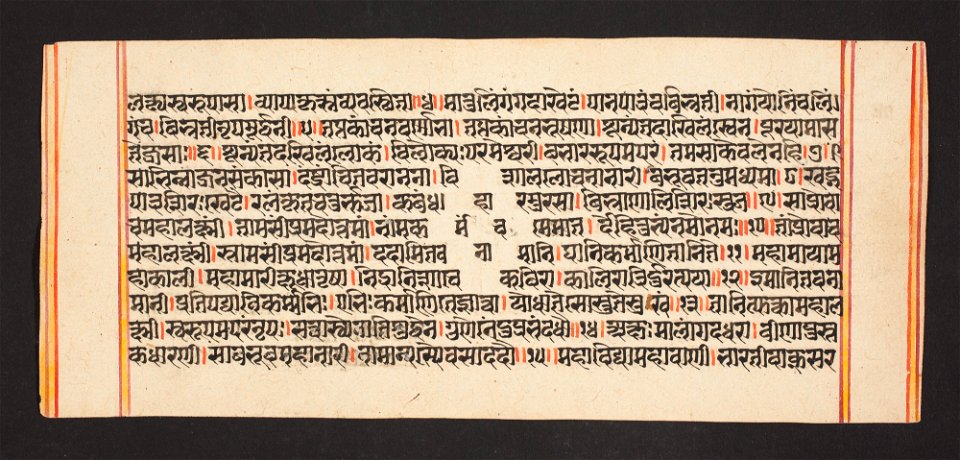 लक्ष्यस्वरूपासा। व्याप्यकृत्स्नंव्यवस्थिता॥४॥मातुलिंगंगदांखेटं।पानपात्रंचबिभ्रती।नागंयोनिंचलिं
गंच।बिभ्रतीनृपमूर्द्धनी॥५॥तप्तकांचनवर्णाभा।तप्तकांचनभूषणा।शून्यंतदखिलंस्वेन।पूरयामास
तेजसा॥६॥शून्यंतदखिलंलोकं।विलोक्यपरमेश्वरी।बभाररूपमपरं।तमसाकेवलेनहि॥७॥
साभिन्नांजनसंकासा।दंष्ट्रांचितवरानना।वि शाललोचनानारी।बभूवतनुमध्यमा॥८॥खड्ग
पात्रशिरःखेटै।रलंकृतचतुर्भुजा।कबंधहा रंसुरसा।बिभ्राणाशिरःस्रज॥९॥साप्रोवा
चमहालक्ष्मीं।तामसीप्रमदोत्तमा।नामक र्म च मेमात।र्देहितुभ्यंनमोनमः॥१०॥तांप्रोवाच
महालक्ष्मी।स्तामसींप्रमदोत्तमां।ददामितव ना मानि।यानिकर्माणितानिते॥११॥महामायाम
हाकाली।महामारीक्षुधातृषा।निद्रातृष्णाच कवीरा।कालरात्रिर्दुरत्यया॥१२॥इमानितवना
मानी।प्रतिपाद्यानिकर्मभिः।एभिःकर्माणितेज्ञात्वा।योधीतेसोश्नुतेसुखं॥१३॥तामित्युक्त्वामहाल
क्ष्मी।स्वरूपमपरंनृप।सत्त्वाख्येनातिशुद्धेन।गुणेनेंदुप्रभंदधौ॥१४॥अक्षमालांगदधरा।वीणापुस्त
कधारणी।साबभूवमहानारी।नामान्यस्यैचसाददौ॥१५॥महाविद्यामहावाणी।भारतीवाक्सर